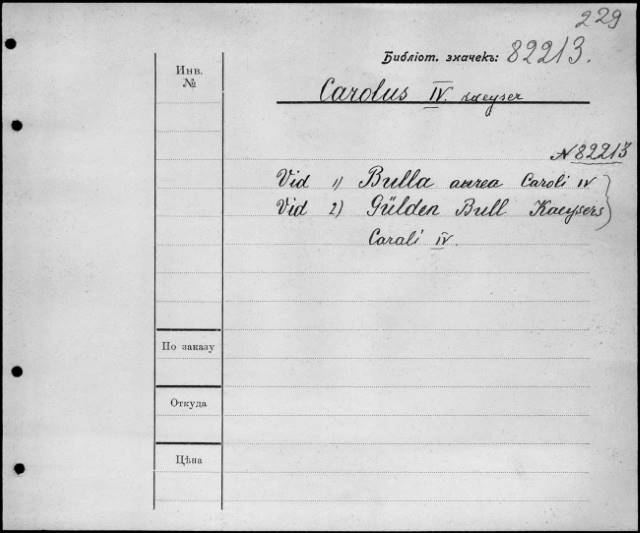 229
Библіот. значекъ: 82213.
Инв.
№
Carolus IV. kaeyser
N 82213
Vid 1) Bulla aurea Caroli IV
Vid 2) Gülden Bull Kaeysers
Carali IV.
По заказу
Откуда
Цѣна